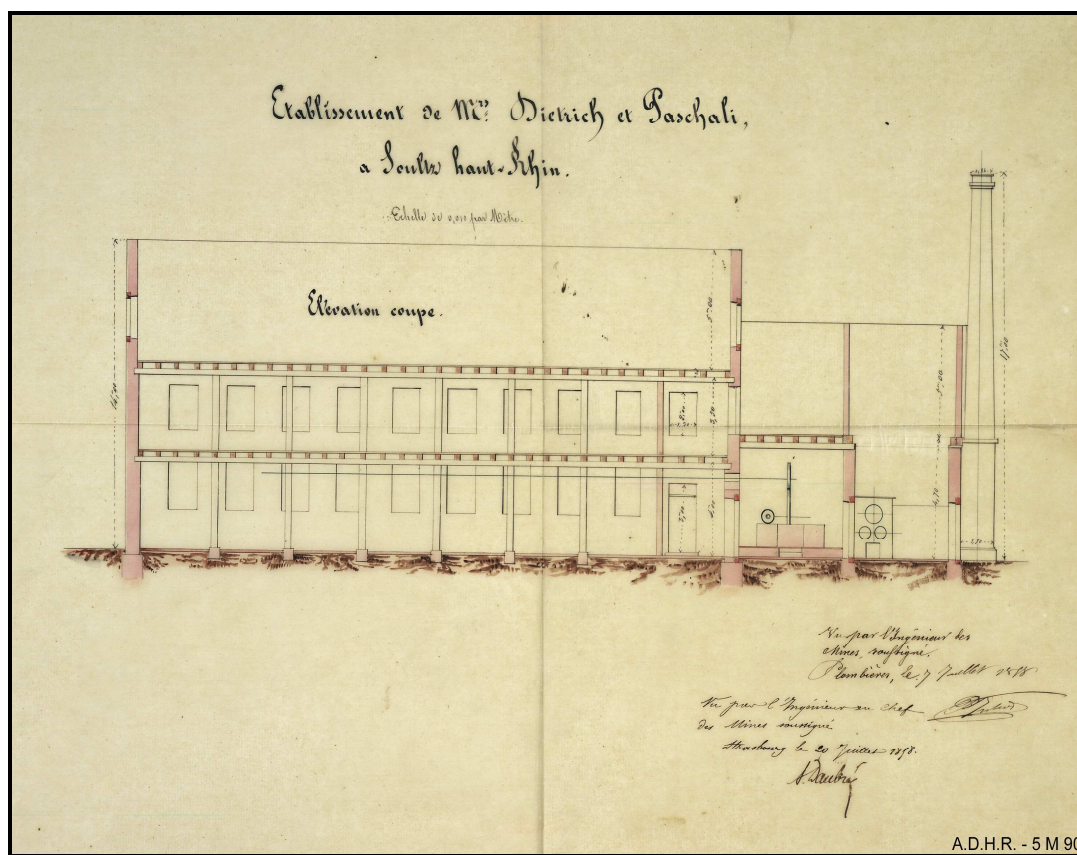 Etablissement de M.rs Dietrich et Paschali,
a Soultz haut-Rhin.
Echelle de 0,010 par Mètre.
Elévation coupe.
Vu par l'Ingénieur des
Mines, soussigné.
Plombières, le 7 Juillet 1858
Vu par l'Ingénieur en chef
des Mines soussigné
Strasbourg le 20 Juillet 1858.
A. Daubrée
A.D.H.R. - 5 M 90